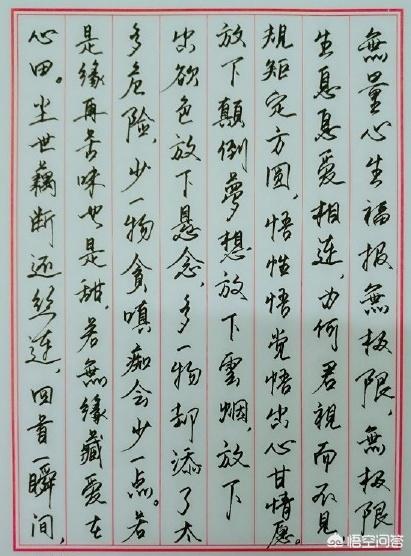 無量心生福报無极限,無极限
生息息爱相連,为何君視而不見,
規矩定方圆,悟性悟觉悟出心甘情愿。
放下顛倒夢想放下雲烟,放下
空欲色放下悬念,多一物却添了太
多危险,少一物貪嗔痴会少一点。若
是緣再苦味也是甜,若無緣藏爱在
心田。尘世藕断还丝連,回首一瞬間,
悟空问答